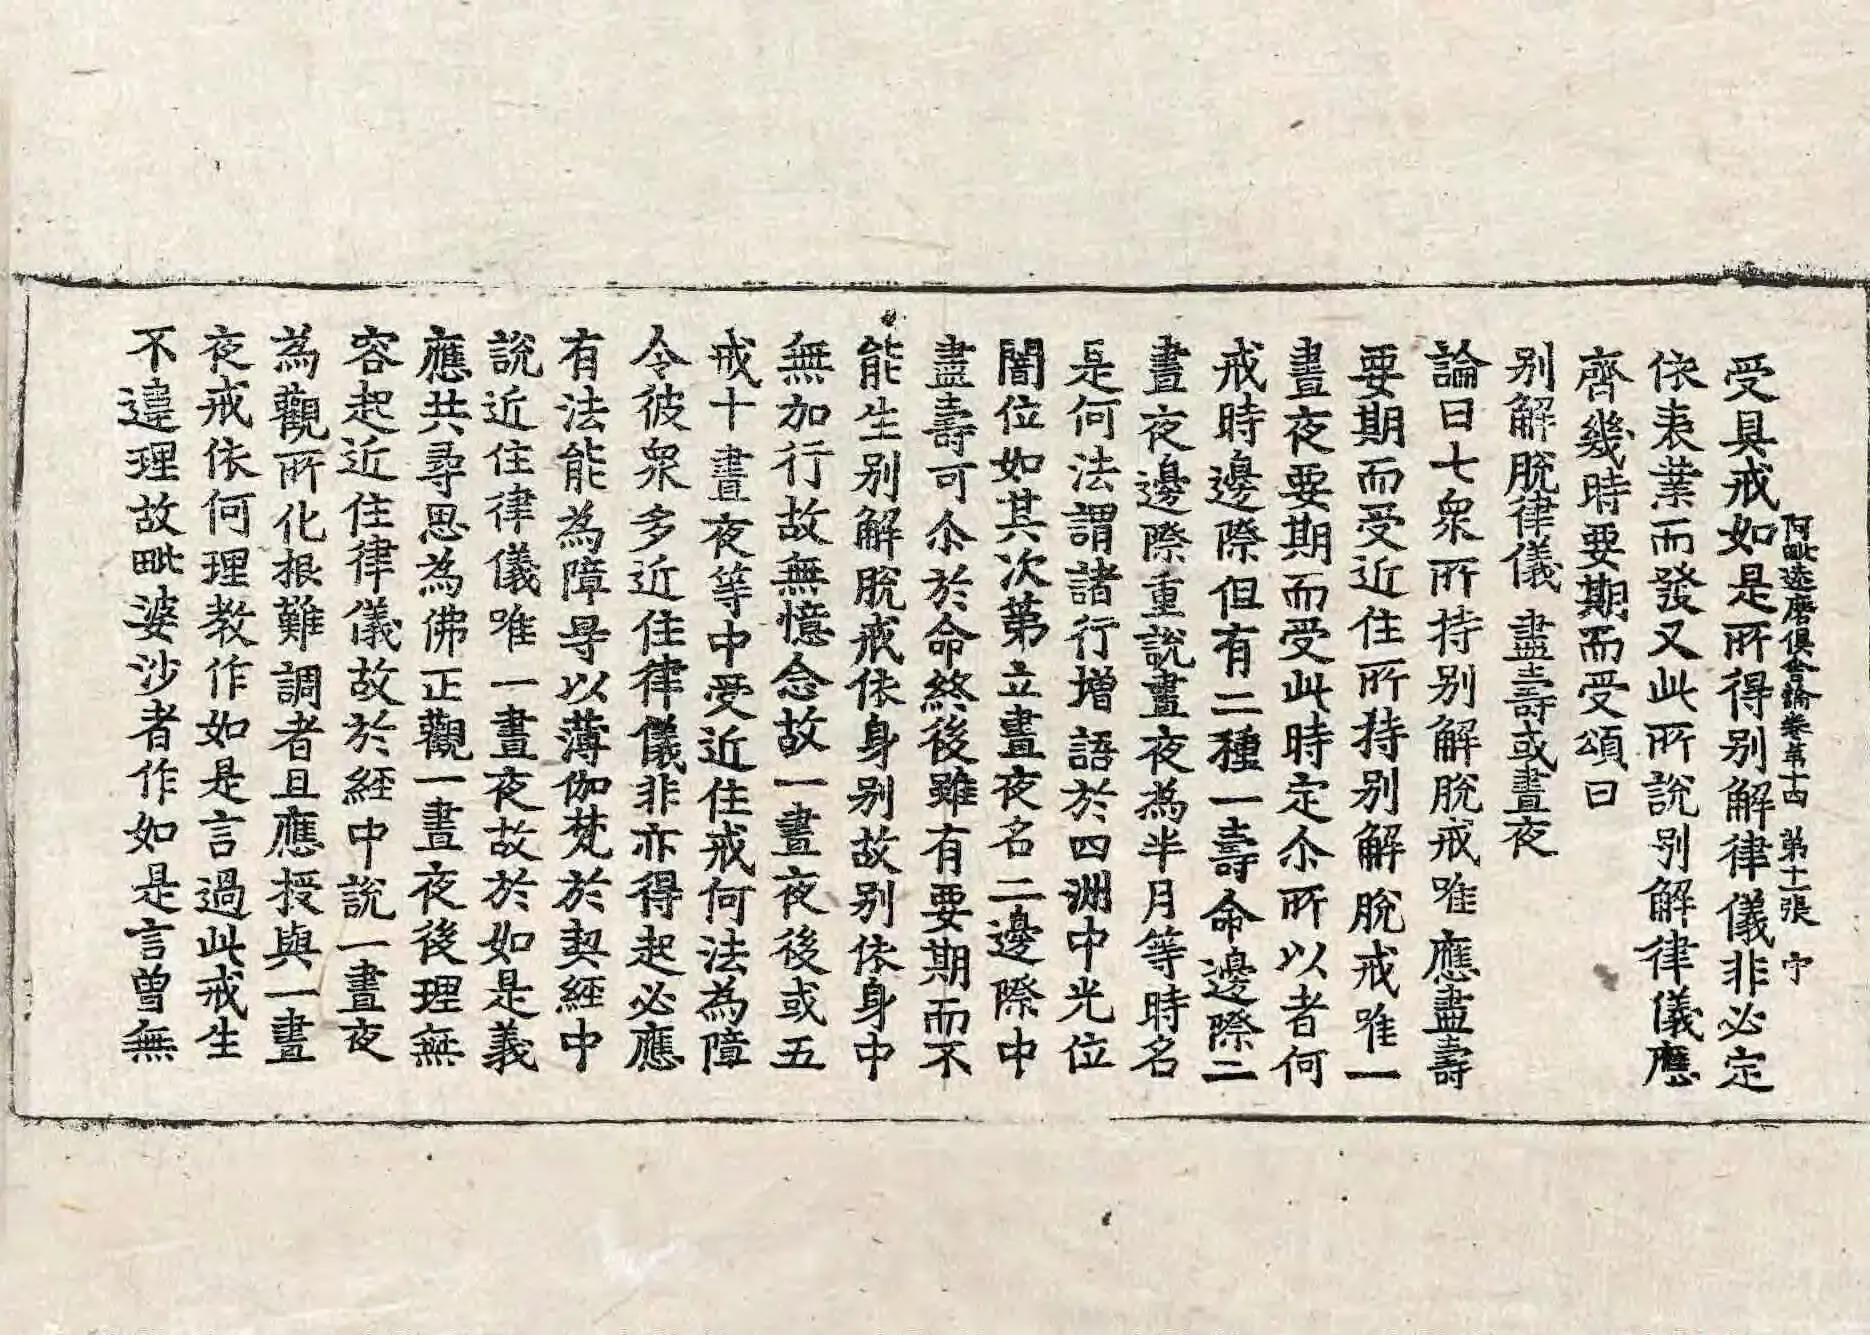 阿毗達磨俱舍論卷第十四　第十一張　宁
受具戒如是所得別解律儀非必定
依表業而發又此所說別解律儀應
齊幾時要期而受頌曰
別解脫律儀　盡壽或晝夜
論曰七衆所持別解脫戒唯應盡壽
要期而受近住所持別解脫戒唯一
晝夜要期而受此時定尒所以者何
戒時邊際但有二種一壽命邊際二
晝夜邊際重說晝夜為半月等時名
是何法謂諸行增語於四洲中光位
闇位如其次第立晝夜名二邊際中
盡壽可尒於命終後雖有要期而不
能生別解脫戒依身別故別依身中
無加行故無憶念故一晝夜後或五
戒十晝夜等中受近住戒何法為障
令彼衆多近住律儀非亦得起必應
有法能為障㝵以薄伽梵於契經中
說近住律儀唯一晝夜故於如是義
應共尋思為佛正觀一晝夜後理無
容起近住律儀故於經中說一晝夜
為觀所化根難調者且應授與一晝
夜戒依何理教作如是言過此戒生
不違理故毗婆沙者作如是言曾無